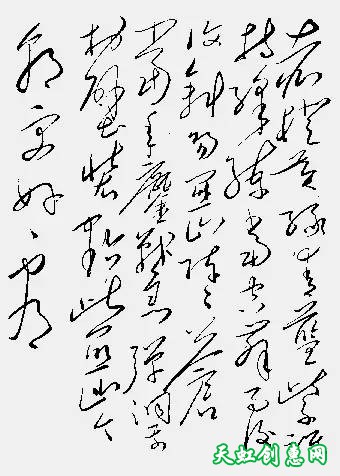 赤橙黄绿青蓝紫谁
持彩练当空舞雨后
复斜阳关山阵阵苍
当年鏖战急弹洞前
村壁装点此关山今
朝更好看
天虹创惠网